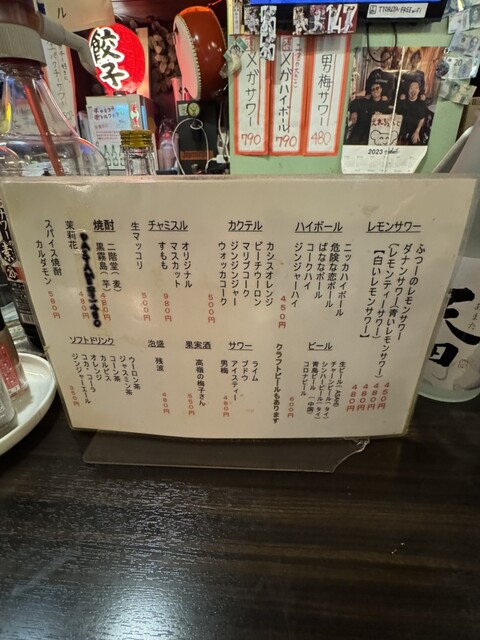 餃子
メガサワー
790
メガハイボール
790
男梅サワー
480
2023
レモンサワー
ふつーのレモンサワー 450円
ダナンサワー(青いレモンサワー) 480円
(レモンティーサワー) 480円
【白いレモンサワー】 480円
ハイボール
ニッカハイボール
危険な恋ボール
ばななボール
コークハイ
ジンジャーハイ
450円
カクテル
カシスオレンジ
ピーチウーロン
マリブコーク
ジンジンジャー
ウォッカコーク
500円
チャミスル
オリジナル
マスカット
すもも
980円
生マッコリ
500円
焼酎
二階堂(麦) 480円
黒霧島(芋) 480円
茉莉花
スパイス焼酎
カルダモン 580円
ビール
チャーンビール(タイ)
シンハービール(タイ)
青島ビール(中国)
コロナビール
600円
クラフトビールもあります
サワー
ライム
ブドウ
アイスティー
男梅
480円
果実酒
高嶺の梅子さん
550円
泡盛
残波
480円
ソフトドリンク
ウーロン茶
ジャスミン茶
コーン茶
カルピス
オレンジ
コカ・コーラ
ジンジャーエール
350円